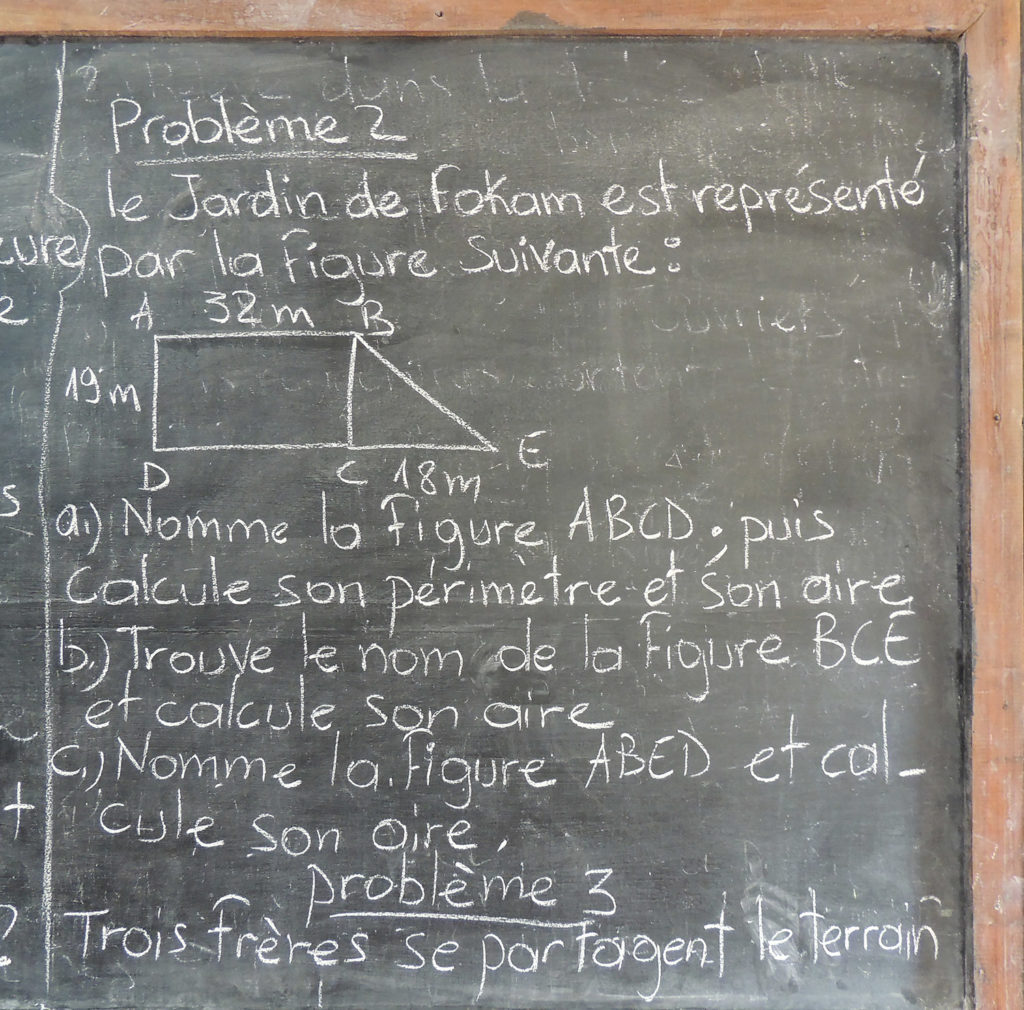 Problème 2
le Jardin de Fokam est représenté
par la Figure Suivante :
A 32 m B
19 m
D C 18 m E
a.) Nomme la figure ABCD ; puis
Calcule son périmètre et son aire
b.) Trouve le nom de la Figure BCE
et calcule son aire
C.) Nomme la figure ABED et cal-
cule son aire.
problème 3
Trois frères se partagent le terrain